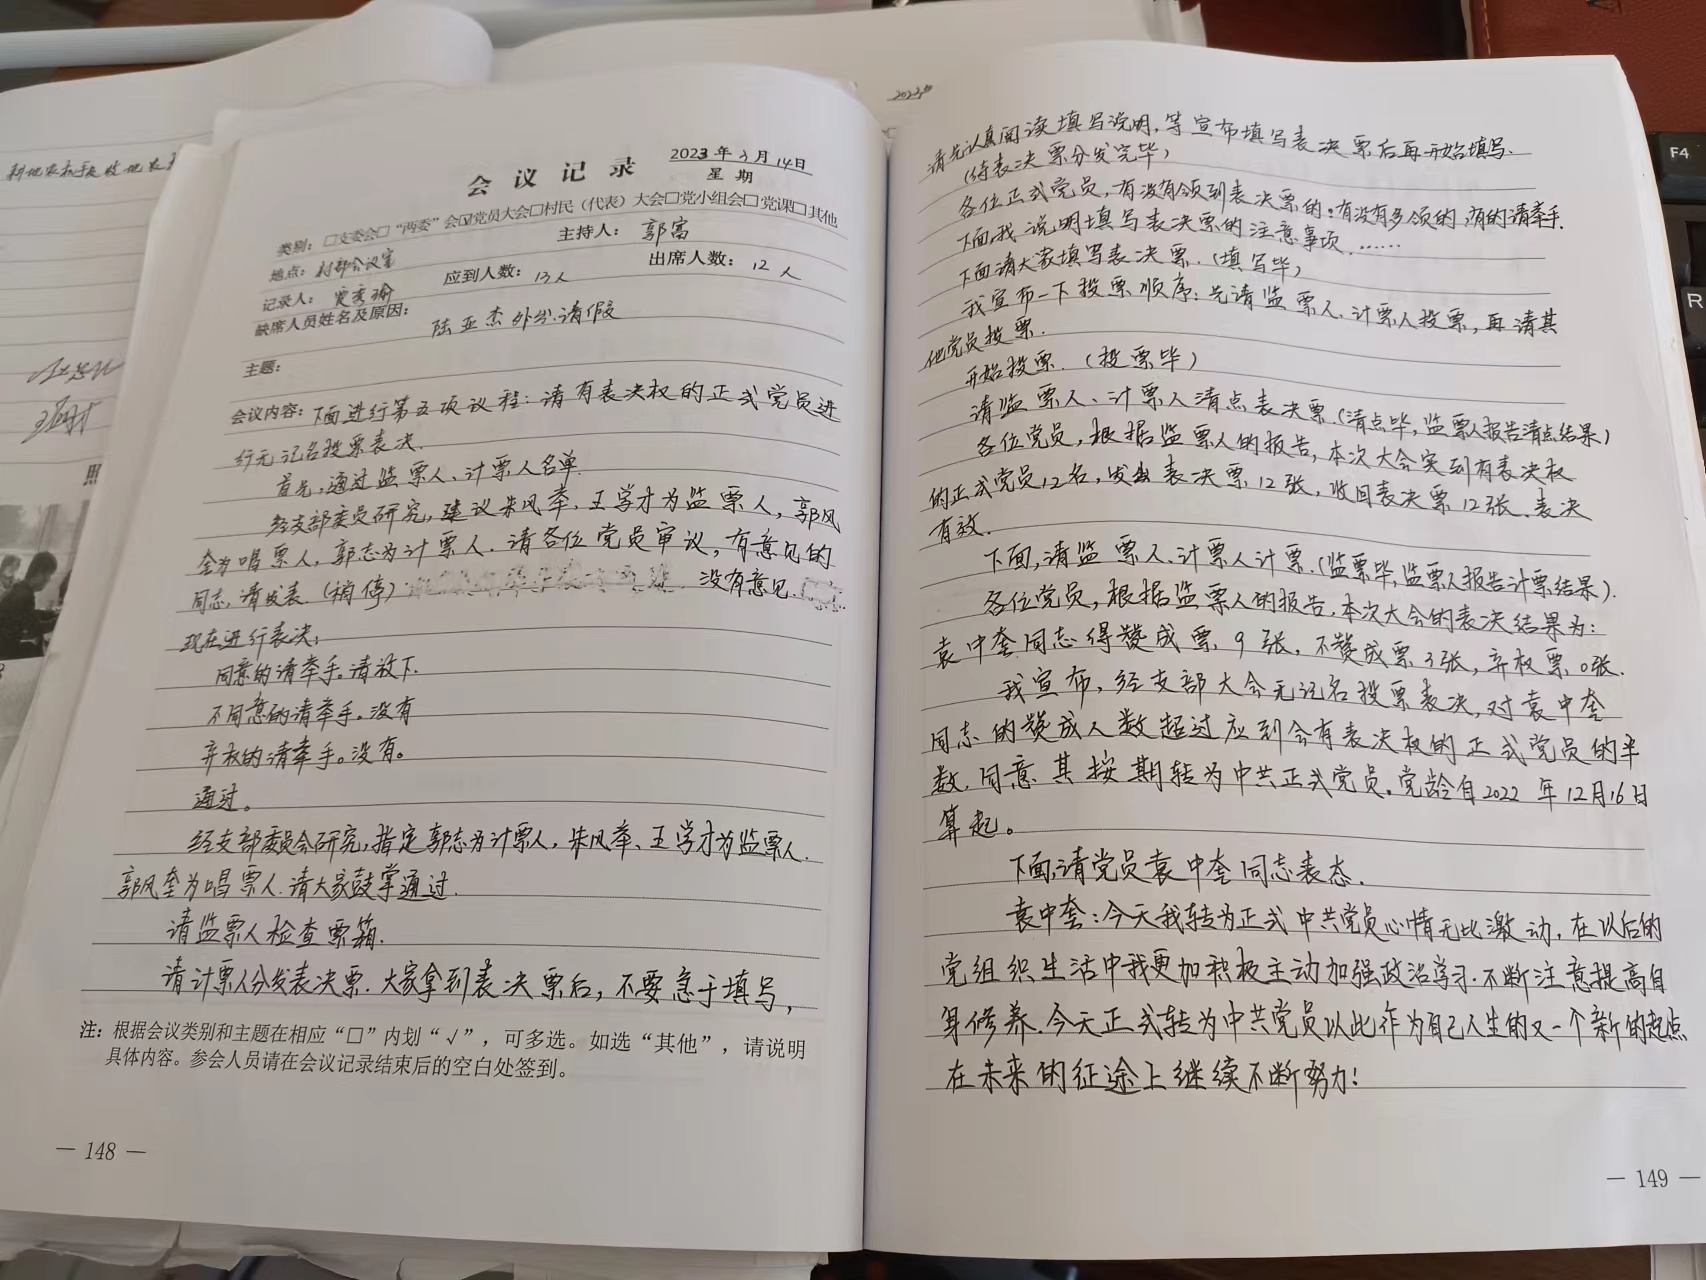 新
2023年3月14日
会议记录
星期
类别：□支委会□“两委”会☑党员大会□村民（代表）大会□党小组会□党课□其他
地点：村部会议室 主持人：郭富
记录人： 应到人数：13人 出席人数：12人
缺席人员姓名及原因：陆亚杰外出.请假
主题：
会议内容：下面进行第五项议程：请有表决权的正式党员进
行无记名投票表决.
首先，通过监票人、计票人名单.
经支部委员研究，建议朱风举、王学才为监票人，郭风
奎为唱票人，郭志为计票人.请各位党员审议，有意见的
同志，请发表.（稍停） 没有意见.
现在进行表决：
同意的请举手。请放下.
不同意的请举手。没有
弃权的请举手。没有。
通过。
经支部委员会研究，指定郭志为计票人，朱风举、王学才为监票人.
郭风奎为唱票人.请大家鼓掌通过.
请监票人检查票箱.
请计票人分发表决票.大家拿到表决票后，不要急于填写，
注：根据会议类别和主题在相应“□”内划“√”，可多选。如选“其他”，请说明
具体内容。参会人员请在会议记录结束后的空白处签到。
— 148 —
请先认真阅读填写说明，等宣布填写表决票后再开始填写.
（待表决票分发完毕）
各位正式党员，有没有领到表决票的？有没有多领的，有的请举手.
下面，我说明填写表决票的注意事项……
下面请大家填写表决票.（填写毕）
我宣布一下投票顺序：先请监票人、计票人投票，再请其
他党员投票.
开始投票.（投票毕）
请监票人、计票人清点表决票（清点毕，监票人报告清点结果）
各位党员，根据监票人的报告，本次大会实到有表决权
的正式党员12名，发出表决票12张，收回表决票12张.表决
有效.
下面，请监票人、计票人计票.（监票毕，监票人报告计票结果）.
各位党员，根据监票人的报告，本次大会的表决结果为：
袁中奎同志得赞成票9张，不赞成票3张，弃权票0张.
我宣布，经支部大会无记名投票表决，对袁中奎
同志的赞成人数超过应到会有表决权的正式党员的半
数，同意其按期转为中共正式党员。党龄自2022年12月16日
算起。
下面，请党员袁中奎同志表态.
袁中奎：今天我转为正式中共党员心情无比激动，在以后的
党组织生活中我更加积极主动加强政治学习.不断注意提高自
身修养.今天正式转为中共党员以此作为自己人生的又一个新的起点
在未来的征途上继续不断努力！
— 149 —
F4
R